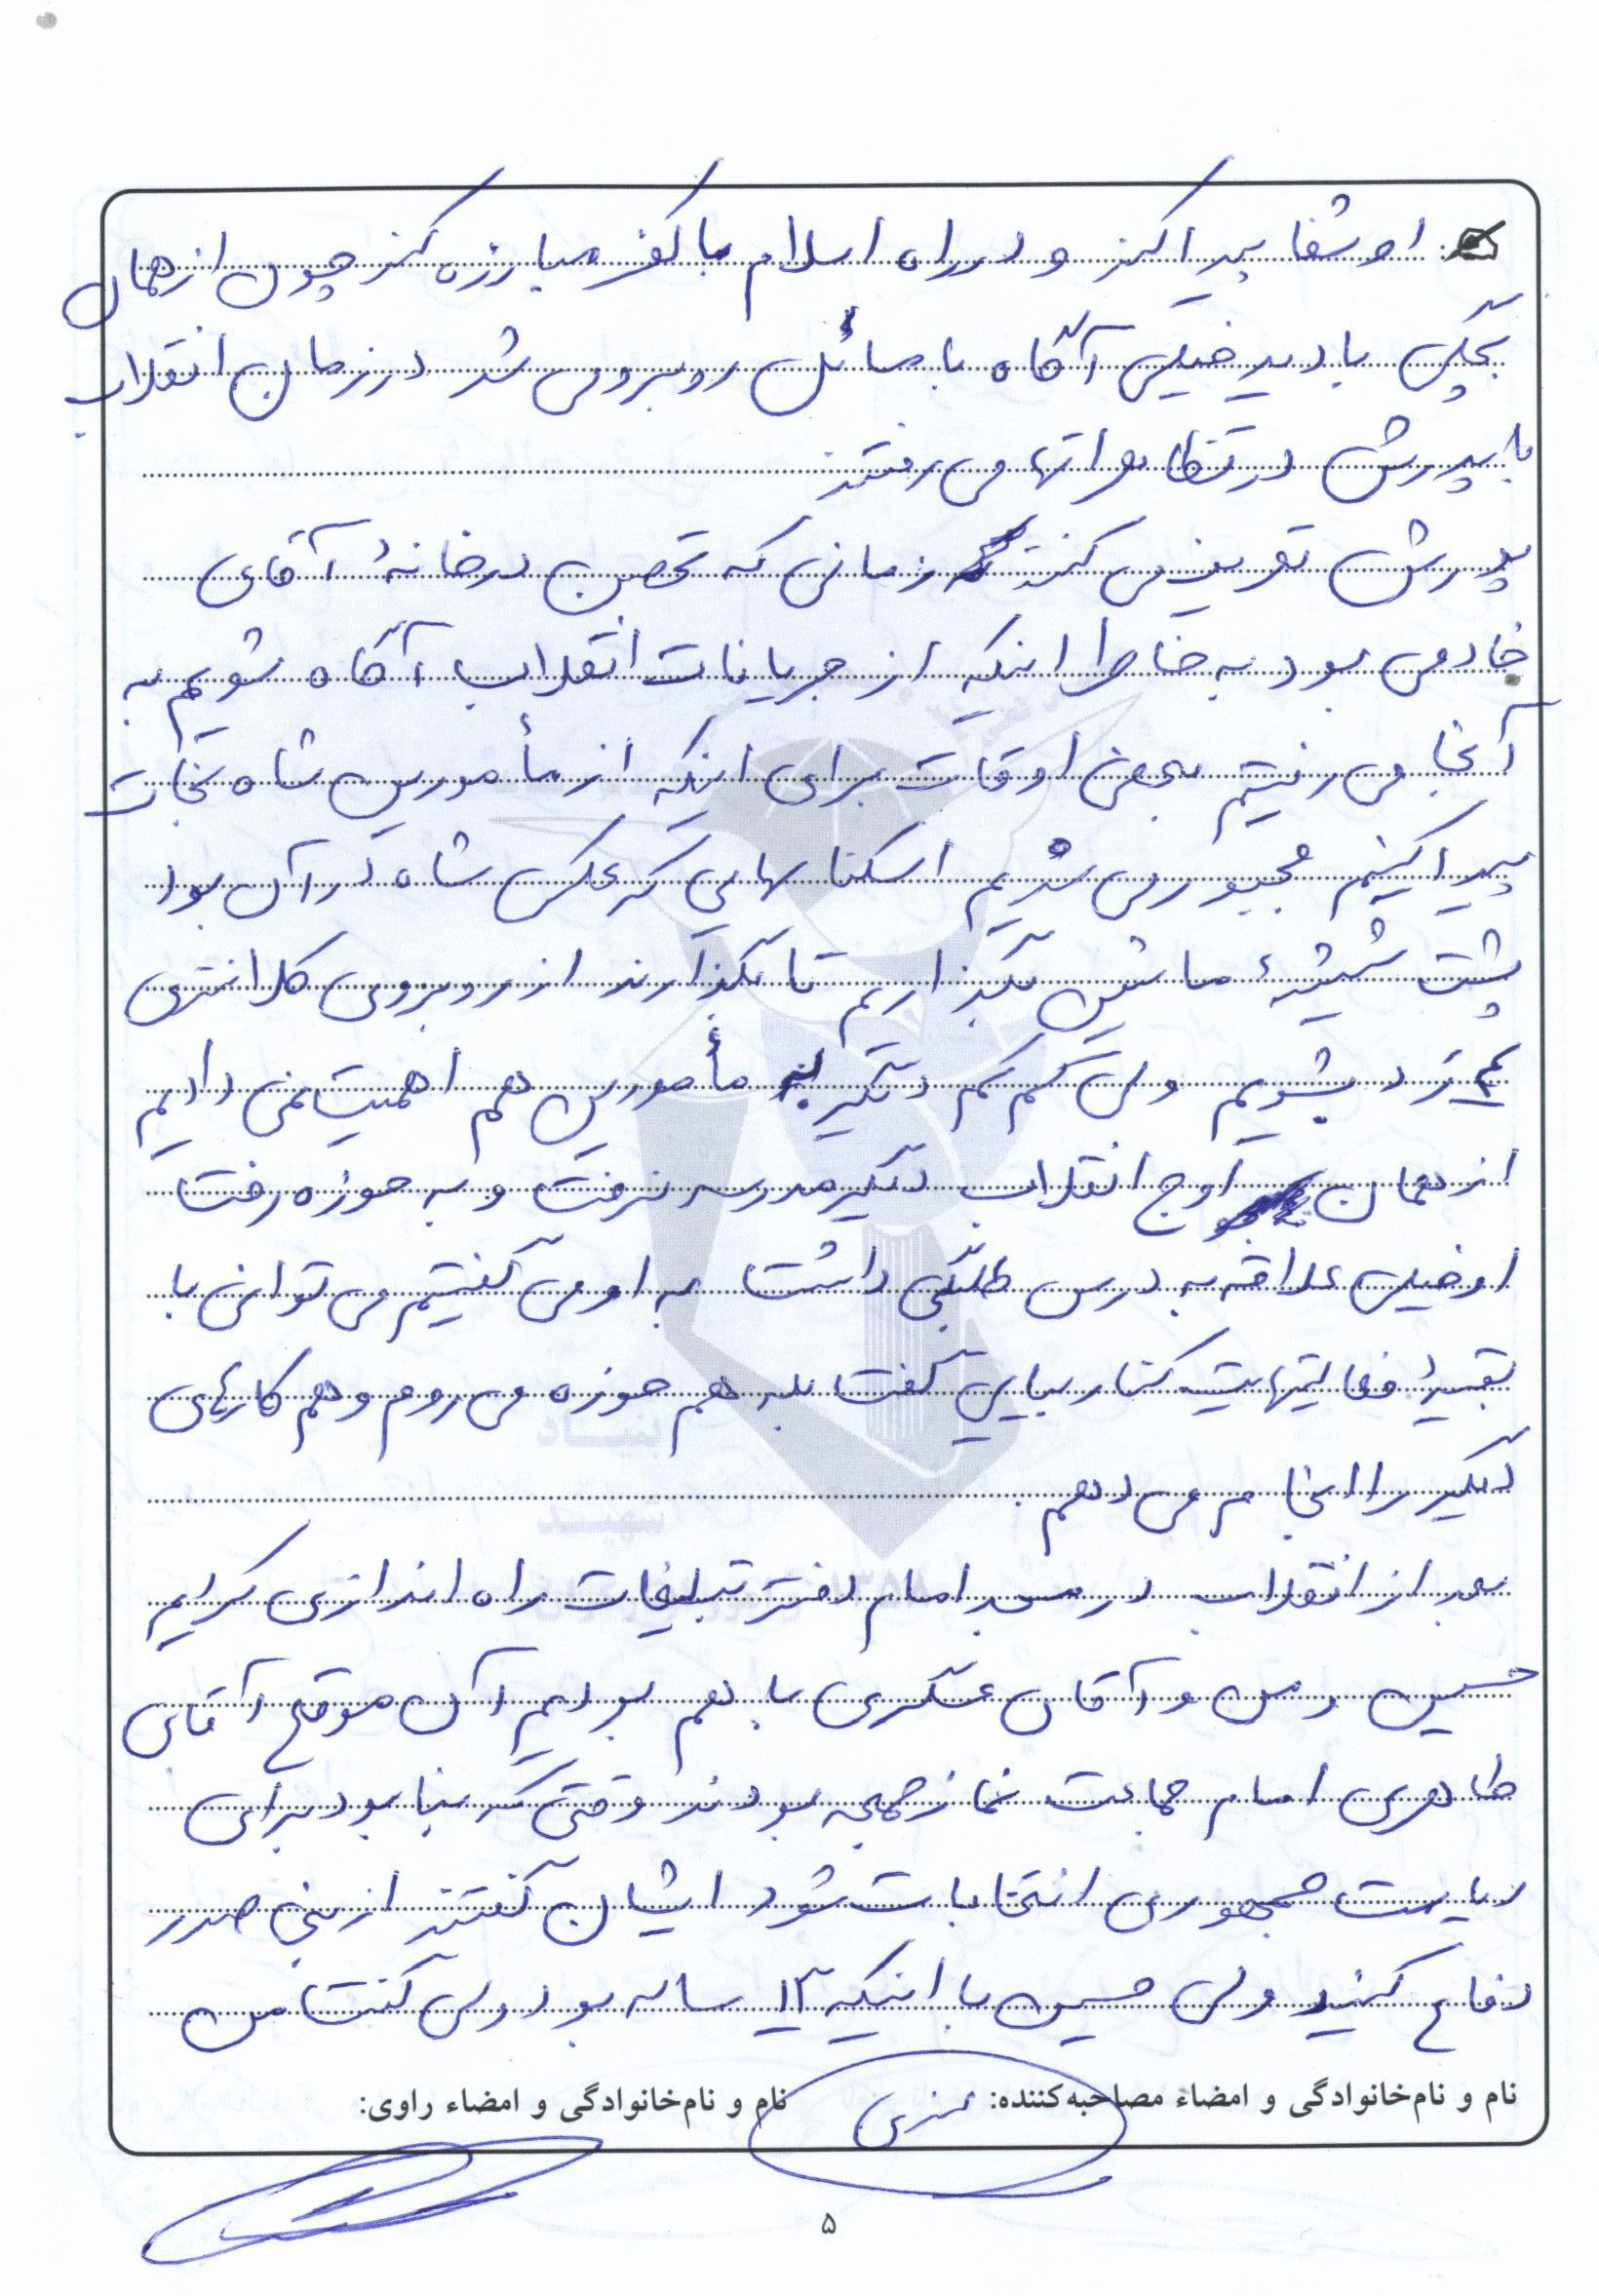 او شفا پیدا کند و در راه اسلام با کفر مبارزه کند چون از همان
بچگی با دید خیلی آگاه با مسائل روبرو می شد در زمان انقلاب
با پدرش در تظاهراتها می رفتند
پدرش تعریف می کنند زمانی که تحصن در خانهٔ آقای
خادمی بود به خاطر اینکه از جریانات انقلاب آگاه شویم به
آنجا می رفتیم بعضی اوقات برای اینکه از مأمورین شاه نجات
پیدا کنیم مجبور می شدیم اسکناسهایی که عکس شاه در آن بود
پشت شیشهٔ ماشین بگذاریم تا بگذارند از روبروی کلانتری
رد بشویم ولی کم کم دیگر به مأمورین هم اهمیت نمی دادیم
از همان اوج انقلاب دیگر مدرسه نرفت و به حوزه رفت
او خیلی علاقه به درس طلبگی داشت به او می گفتیم می توانی با
بقیهٔ فعالیتهایت کنار بیایی گفت بله هم حوزه می روم و هم کارهای
دیگر را انجام می دهم.
بعد از انقلاب در مسجد امام دفتر تبلیغات راه اندازی کردیم
حسین و من و آقای عسگری با هم بودیم آن موقع آقای
طاهری امام جماعت نماز جمعه بودند وقتی که بنا بود برای
ریاست جمهوری انتخابات شود ایشان گفتند از بنی صدر
دفاع کنید ولی حسین با اینکه ۱۲ ساله بود ولی گفت من
نام و نام‌خانوادگی و امضاء مصاحبه‌کننده: نام و نام‌خانوادگی و امضاء راوی:
۵